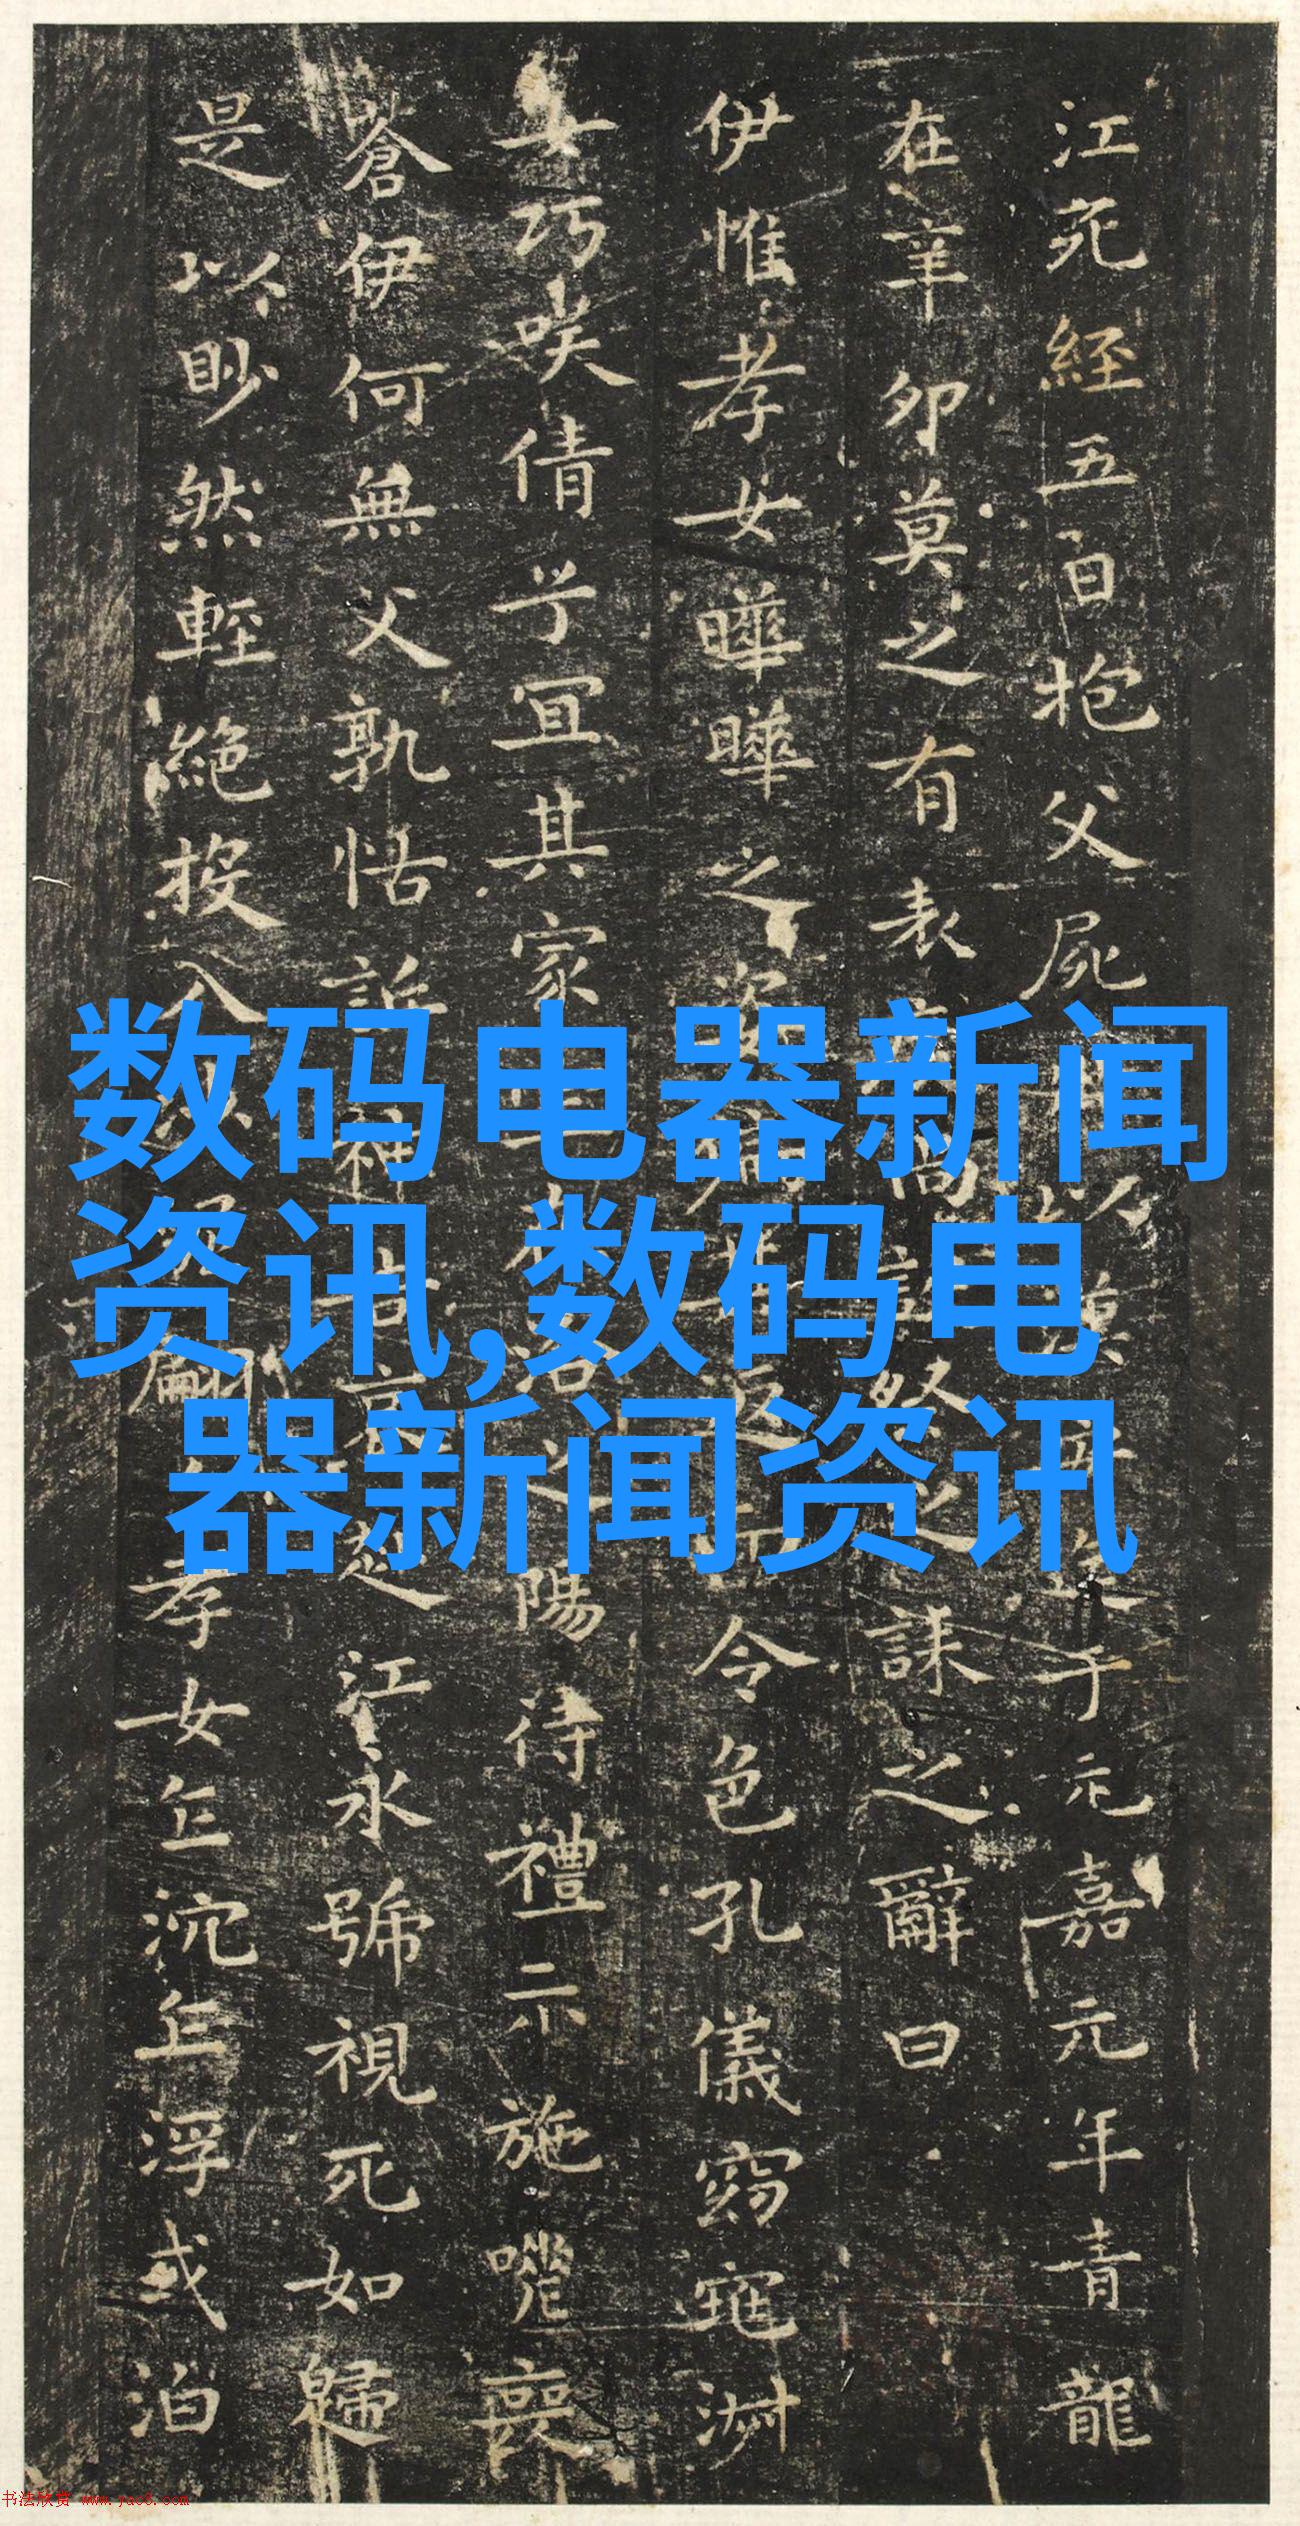 江死經五日抱父屍
于元嘉元年青龍
在辛卯莫之有表
誄之辭曰
伊惟孝女曄曄之姿
令色孔儀窈窕淑
女巧咲倩兮宜其家
洛之陽待禮未施嗟喪
蒼伊何無父孰怙訴神
江永號視死如歸
是以眇然輕絕投入
孝女乍沉乍浮或泊
数码电器新闻
资讯,数码电
器新闻资讯
书法欣赏 www.yac8.com